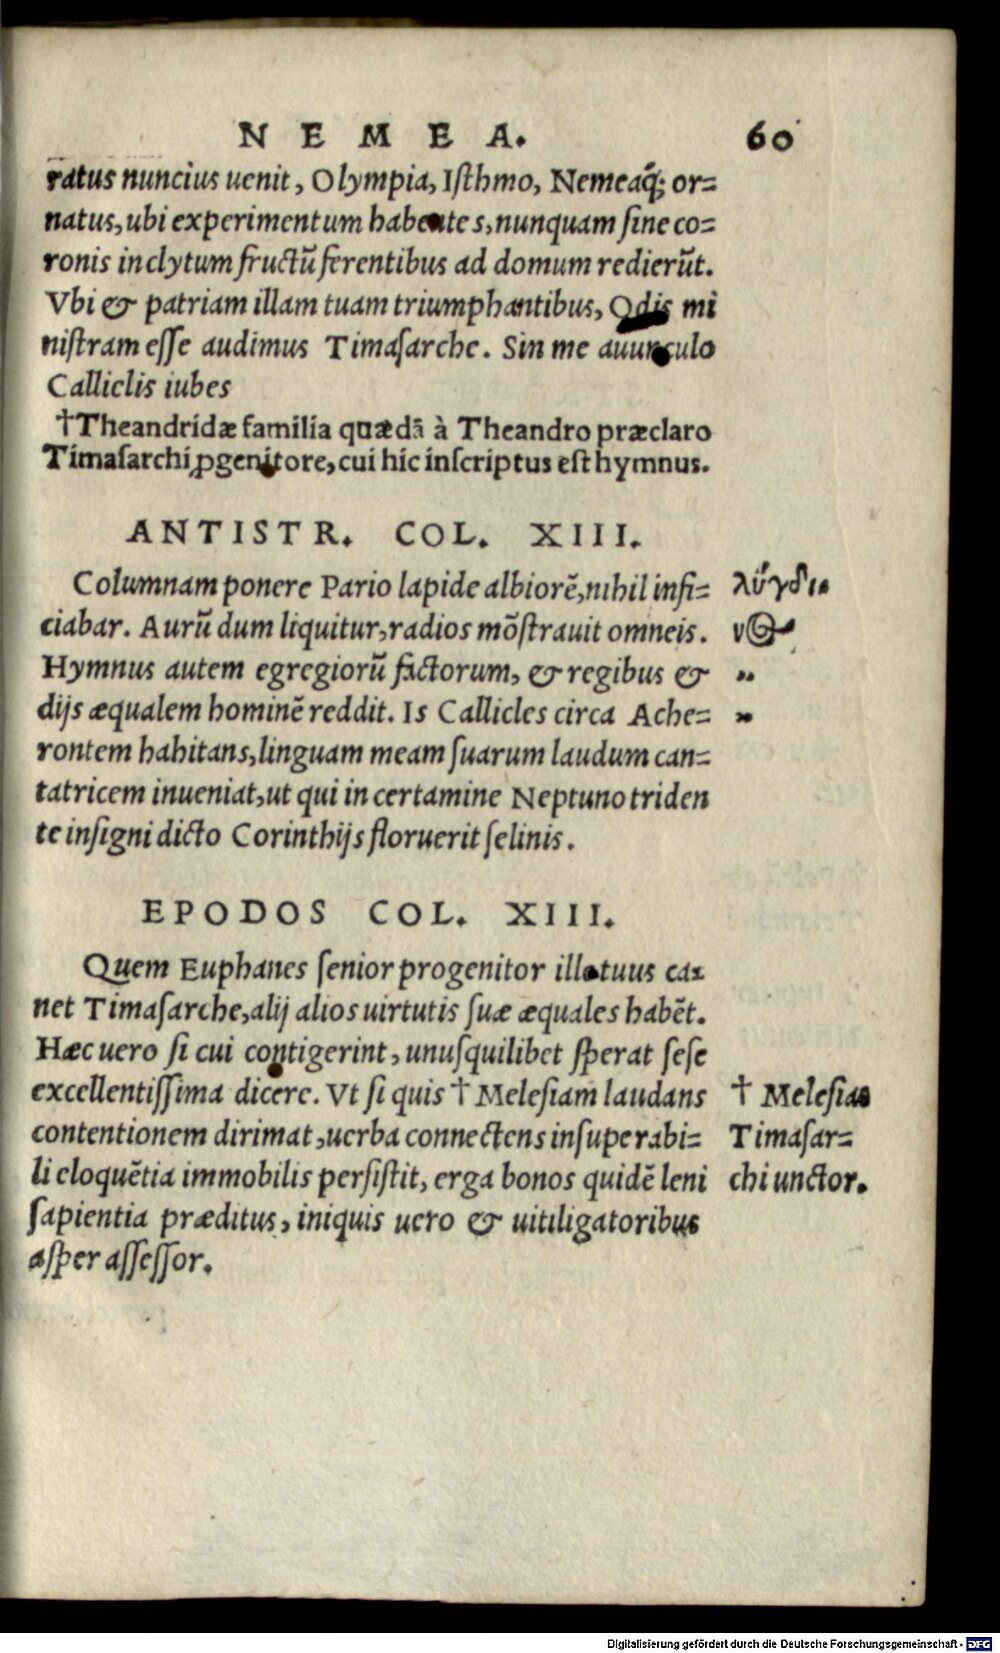 NEMEA. 60
ratus nuncius uenit, Olympia, Isthmo, Nemeaq́; or=
natus, ubi experimentum habentes, nunquam sine co=
ronis inclytum fructũ ferentibus ad domum redierũt.
Vbi & patriam illam tuam triumphantibus, Odis mi
nistram esse audimus Timasarche. Sin me auunculo
Calliclis iubes
†Theandridæ familia quædã à Theandro præclaro
Timasarchi ꝓgenitore, cui hic inscriptus est hymnus.
ANTISTR. COL. XIII.
Columnam ponere Pario lapide albiorẽ, nihil infi= λύγδι
ciabar. Aurũ dum liquitur, radios mõstrauit omneis. ν
Hymnus autem egregiorũ factorum, & regibus & „
dijs æqualem hominẽ reddit. Is Callicles circa Ache= „
rontem habitans, linguam meam suarum laudum can=
tatricem inueniat, ut qui in certamine Neptuno triden
te insigni dicto Corinthijs floruerit selinis.
EPODOS COL. XIII.
Quem Euphanes senior progenitor ille tuus ca=
net Timasarche, alij alios uirtutis suæ æquales habẽt.
Hæc uero si cui contigerint, unusquilibet sperat sese
excellentissima dicere. Vt si quis † Melesiam laudans † Melesias
contentionem dirimat, uerba connectens insuperabi= Timasar=
li eloquẽtia immobilis persistit, erga bonos quidẽ leni chi unctor.
sapientia præditus, iniquis uero & uitiligatoribus
asper assessor.
Digitalisierung gefördert durch die Deutsche Forschungsgemeinschaft - DFG